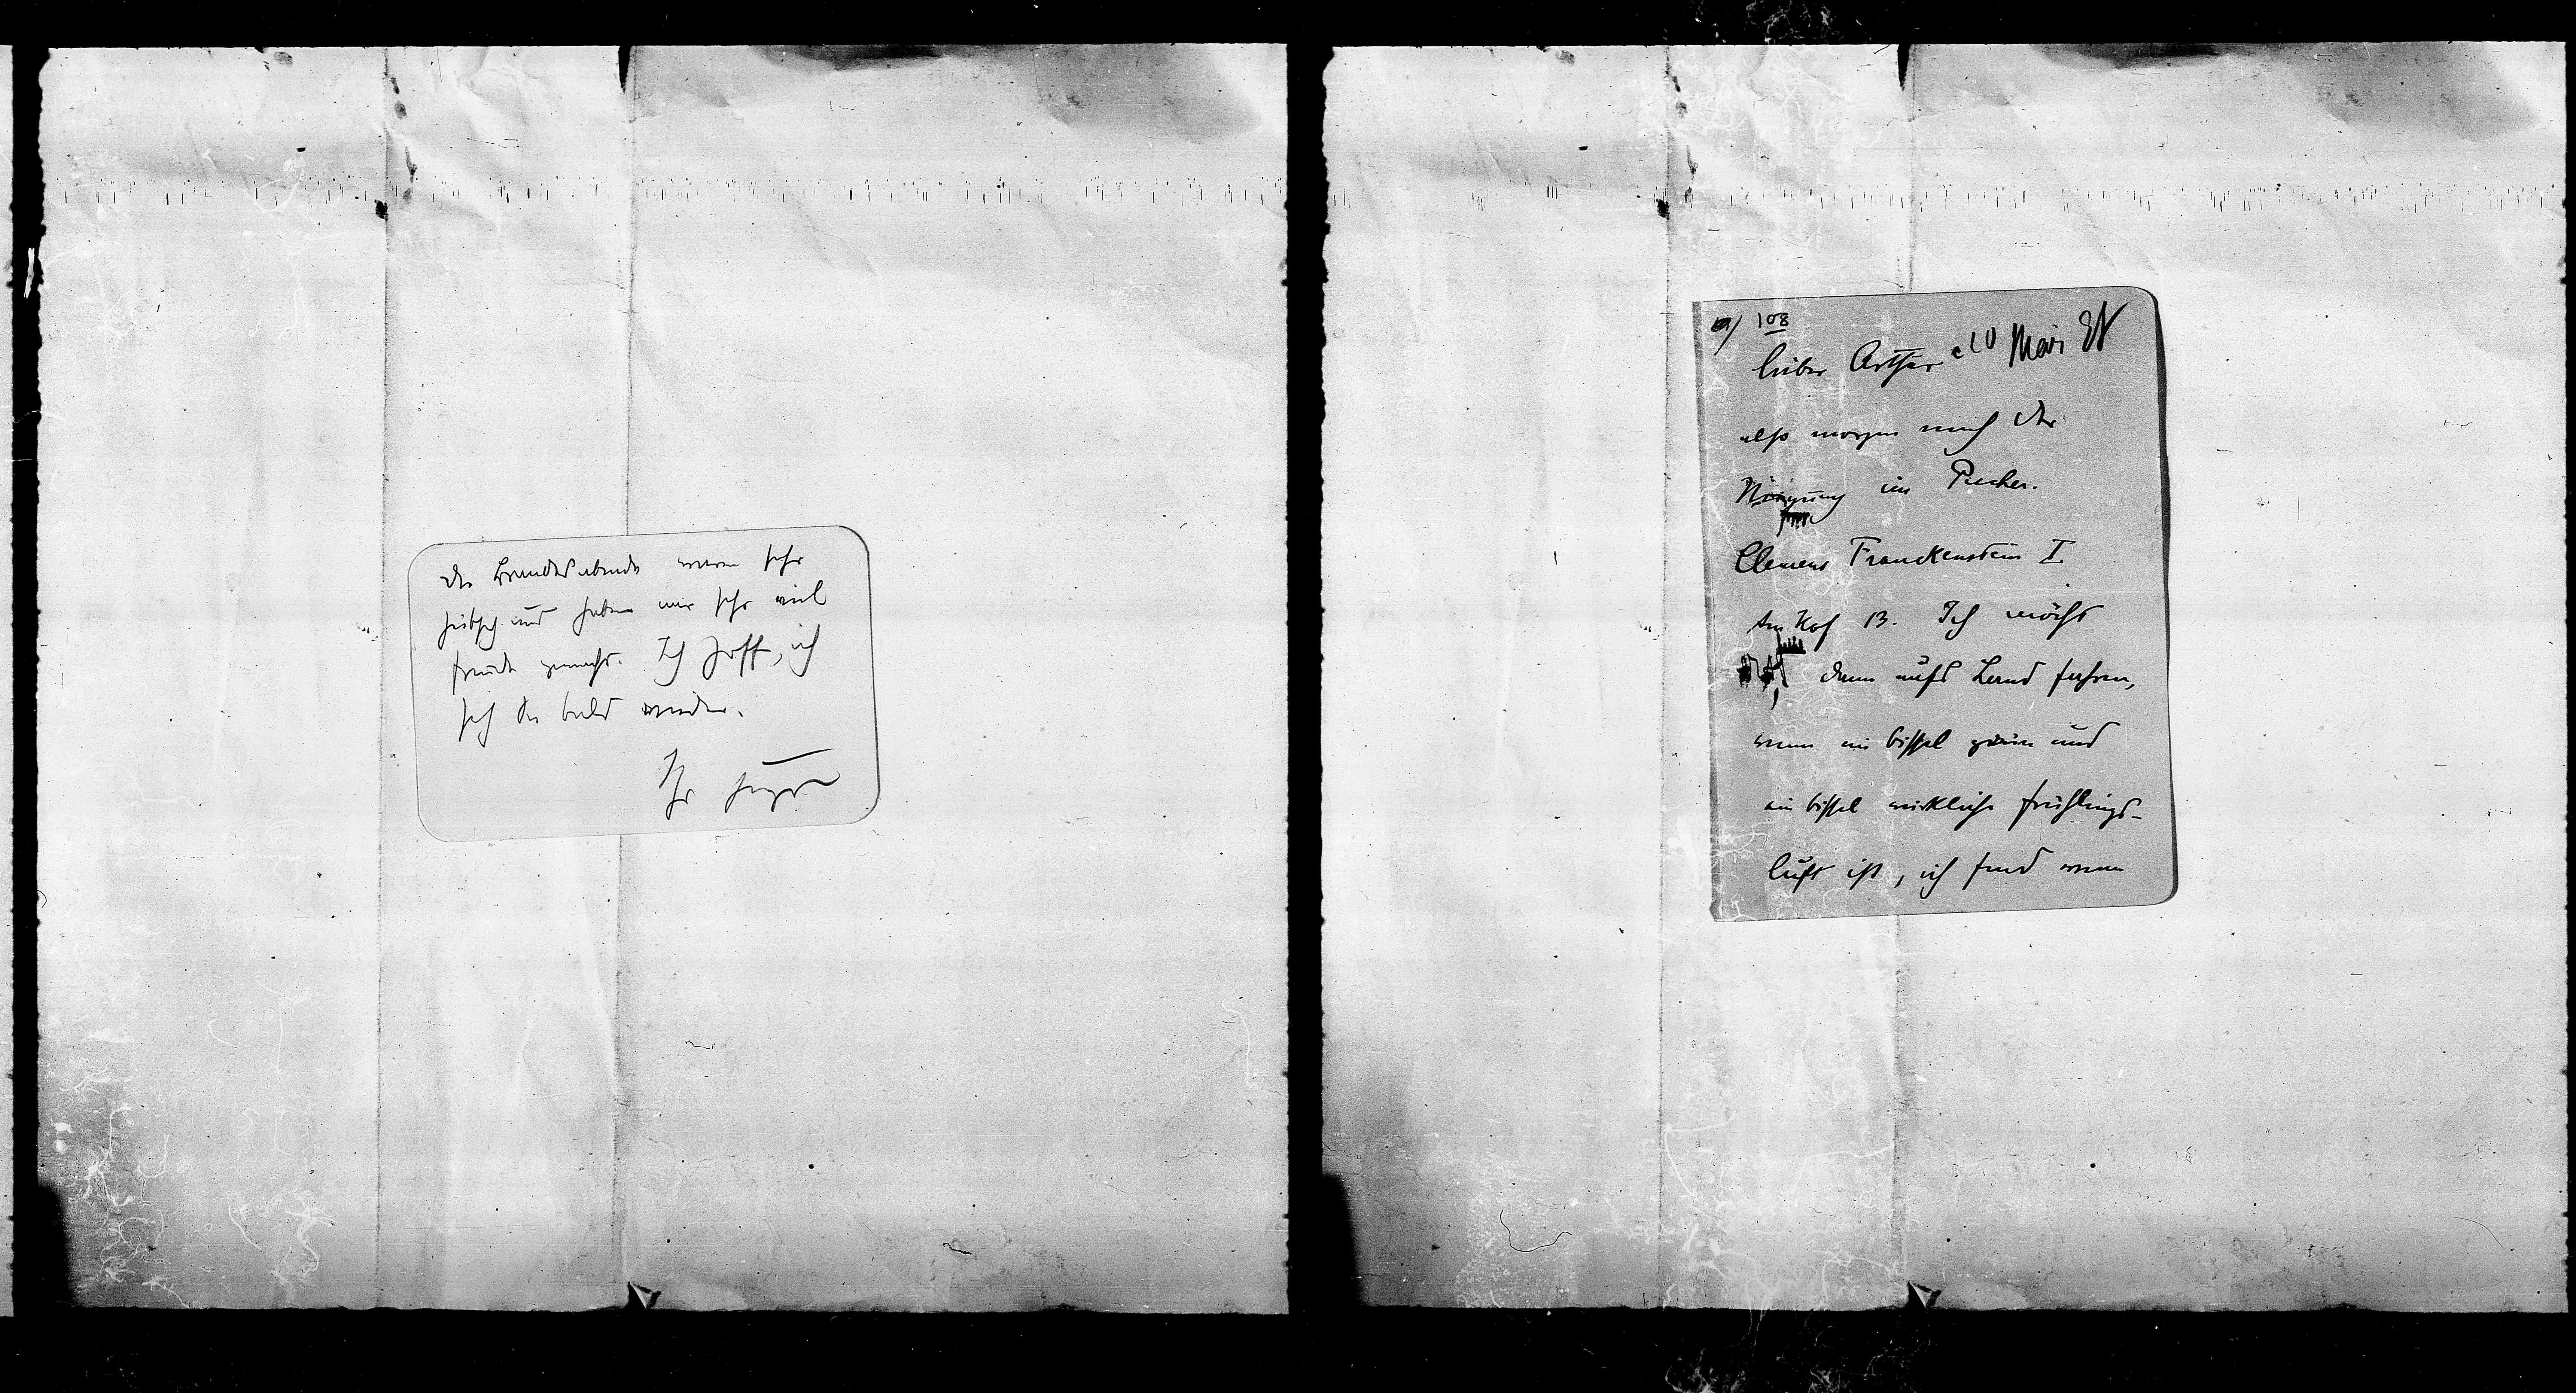 Die Brandesabende waren sehr
hübsch und haben mir sehr viel
Freude gemacht. Ich hoff, ich
seh Sie bald wieder.
Ihr Hugo
108
lieber Arthur
also morgen nach der
im Pucher.
Clemens Franckenstein I.
Am Hof 13. Ich möcht
dann aufs Land fahren,
wenn ein bissel grün und
ein bissel wirkliche Frühlings-
luft ist, ich find wenn